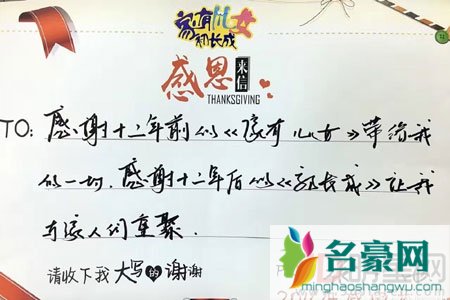 家有儿女
初长成
感恩
来信
THANKSGIVING
TO: 感谢十二年前的《家有儿女》带给我
的一切,感谢十二年后的《初长成》让我
与家人们重聚.
请收下我 大写的谢谢
名豪网
https://minghaowang.com/